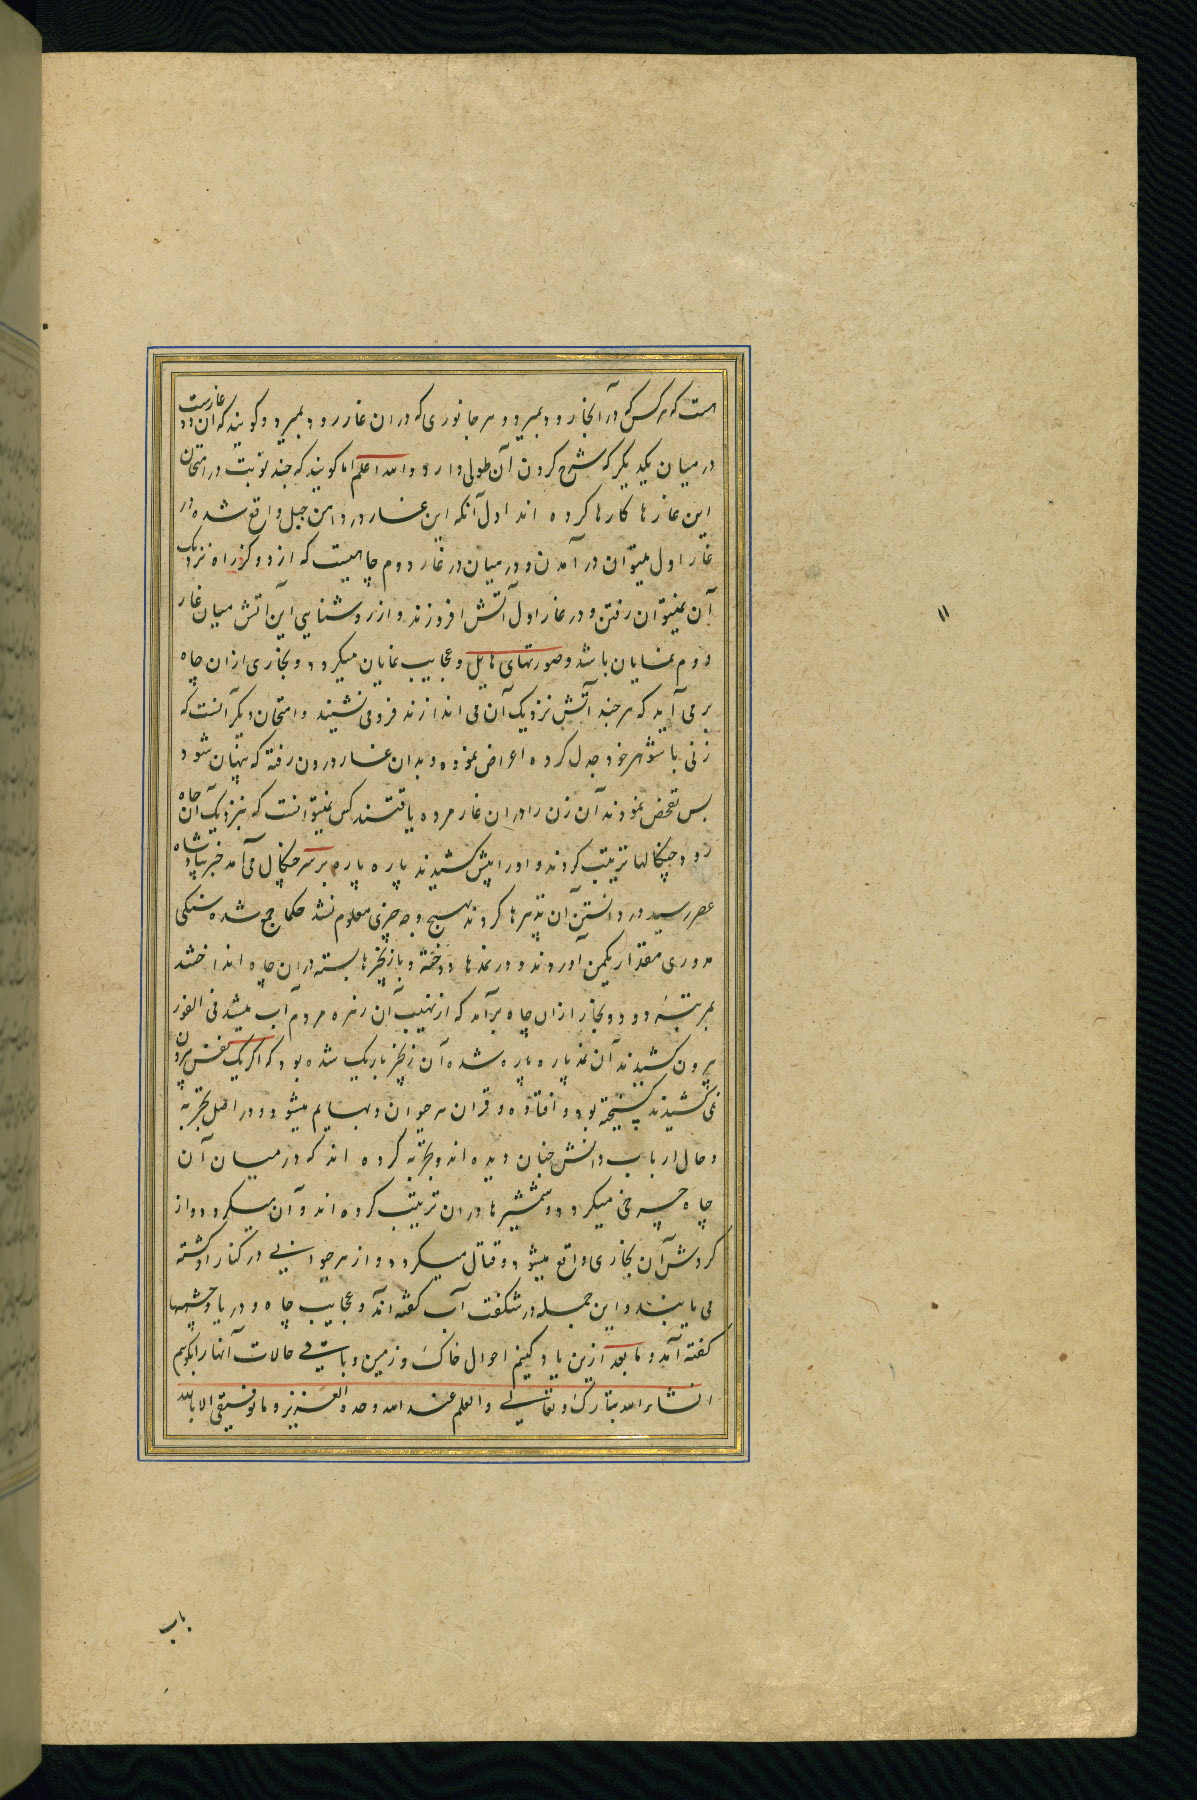 هست که هر کس که در آنجا رود بمیرد و هر جانوری که در ان غار رود بمیرد و کویند که ان دو غارست
در میان یکدیکر که شرح کردن آن طولی دارد والله اعلم اما کویند که چند نوبت در امتحان
این غارها کارها کرده اند اول آنکه این غار در دامن جبل واقع شده در
غار اول میتوان در آمدن و در میان در غار دوم چاهیست که از دو کز راه نزدیک
آن نمیتوان رفتن و در غار اول آتش افروزند و از روشنایی این آتش میان غار
دوم نمایان باشد و صورتهای هایل و عجایب نمایان میکردد و بخاری از ان چاه
بر می آید که هر چند آتش نزدیک آن می اندازند فرو می نشیند و امتحان دیکر آنست که
زنی با شوهر خود جدل کرده اعراض نموده و بدان غار درون رفته که پنهان شود
پس تفحص نمودند آن زن را در ان غار مرده یافتند کس نمیتوانست که بنزدیک آن چاه
رود چنکالها ترتیب کردند و او را پیش کشیدند پاره پاره بر سر چنکال می آمد خبر بپادشاه
عصر رسید در دانستن آن تدبیرها کردند بهیچ وجه چیزی معلوم نشد حکما جمع شده سنکی
مدوری مقدار یکمن آوردند و در نمدها دوخته و با زنجیرها بسته در ان چاه انداختند
بمرتبهٔ دود و بخار از ان چاه برآمد که از نهیب آن زهره مردم آب میشد فی الفور
بیرون کشیدند آن نمد پاره پاره شده آن زنجیر باریک شده بود که اکر یک نفس بیرون
نمی کشیدند کسیخته بود و افتاده و قران به حیوان و بهایم میشود و در اصل تجربه
و حال ارباب دانش چنان دیده اند و تجربه کرده اند که در میان آن
چاه چرخی میکردد و شمشیرها در ان ترتیب کرده اند و آن میکردد و از
کردش آن بخاری واقع میشود و قتال میکردد و از هر حیوانی در کنار او کشته
می یابند و این جمله در شکفت آب کفته اند و عجایب چاه و دریا و چشمها
کفته آمد و ما بعد ازین یاد کنیم احوال خاک و زمین و باقی حالات آنها را بکوییم
انشاءالله تبارک و تعالی والعلم عند الله وحده العزیز و ما توفیقی الا بالله
باب
۱۱